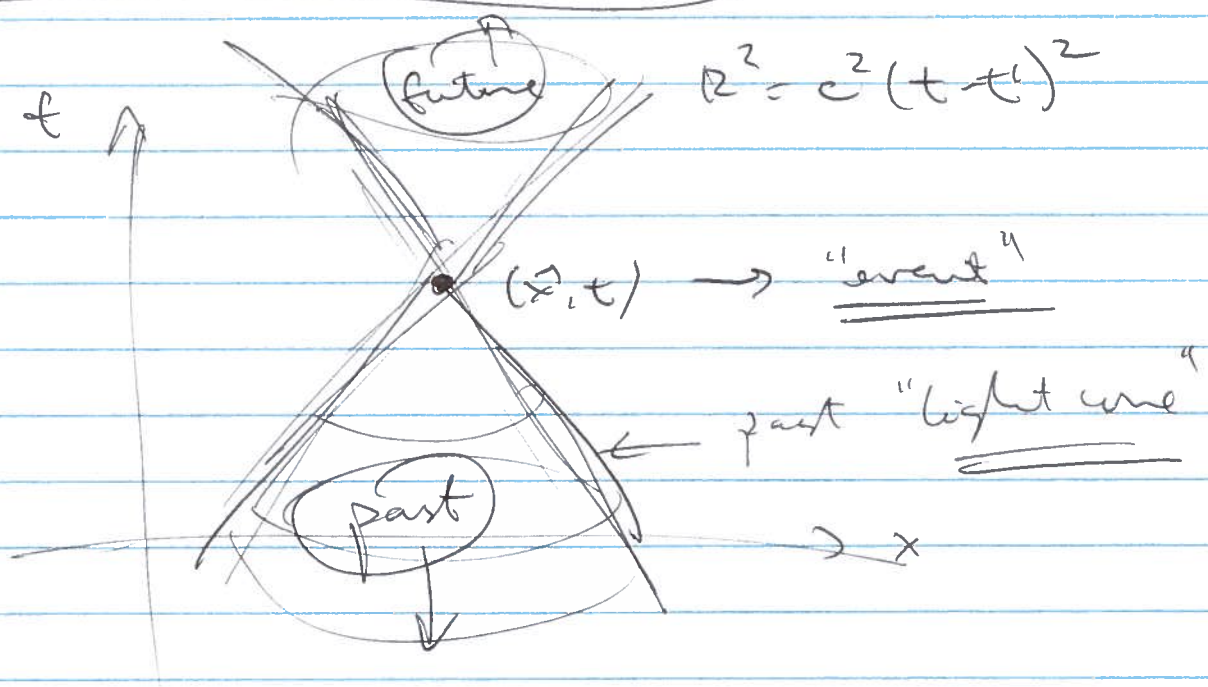 future R² = c² (t - t')²
t
(x⃗, t) → "event"
← past "light cone"
past
x